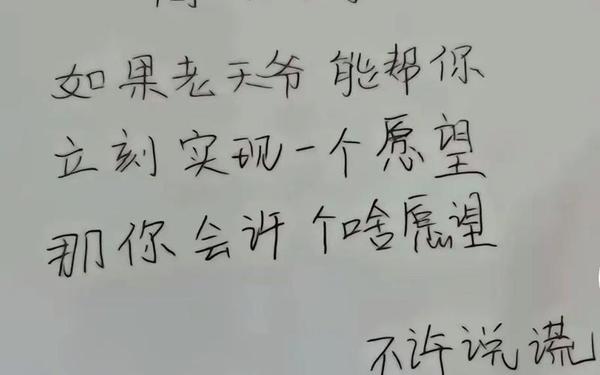 如果老天爷能帮你
立刻实现一个愿望
那你会许个啥愿望
不许说谎